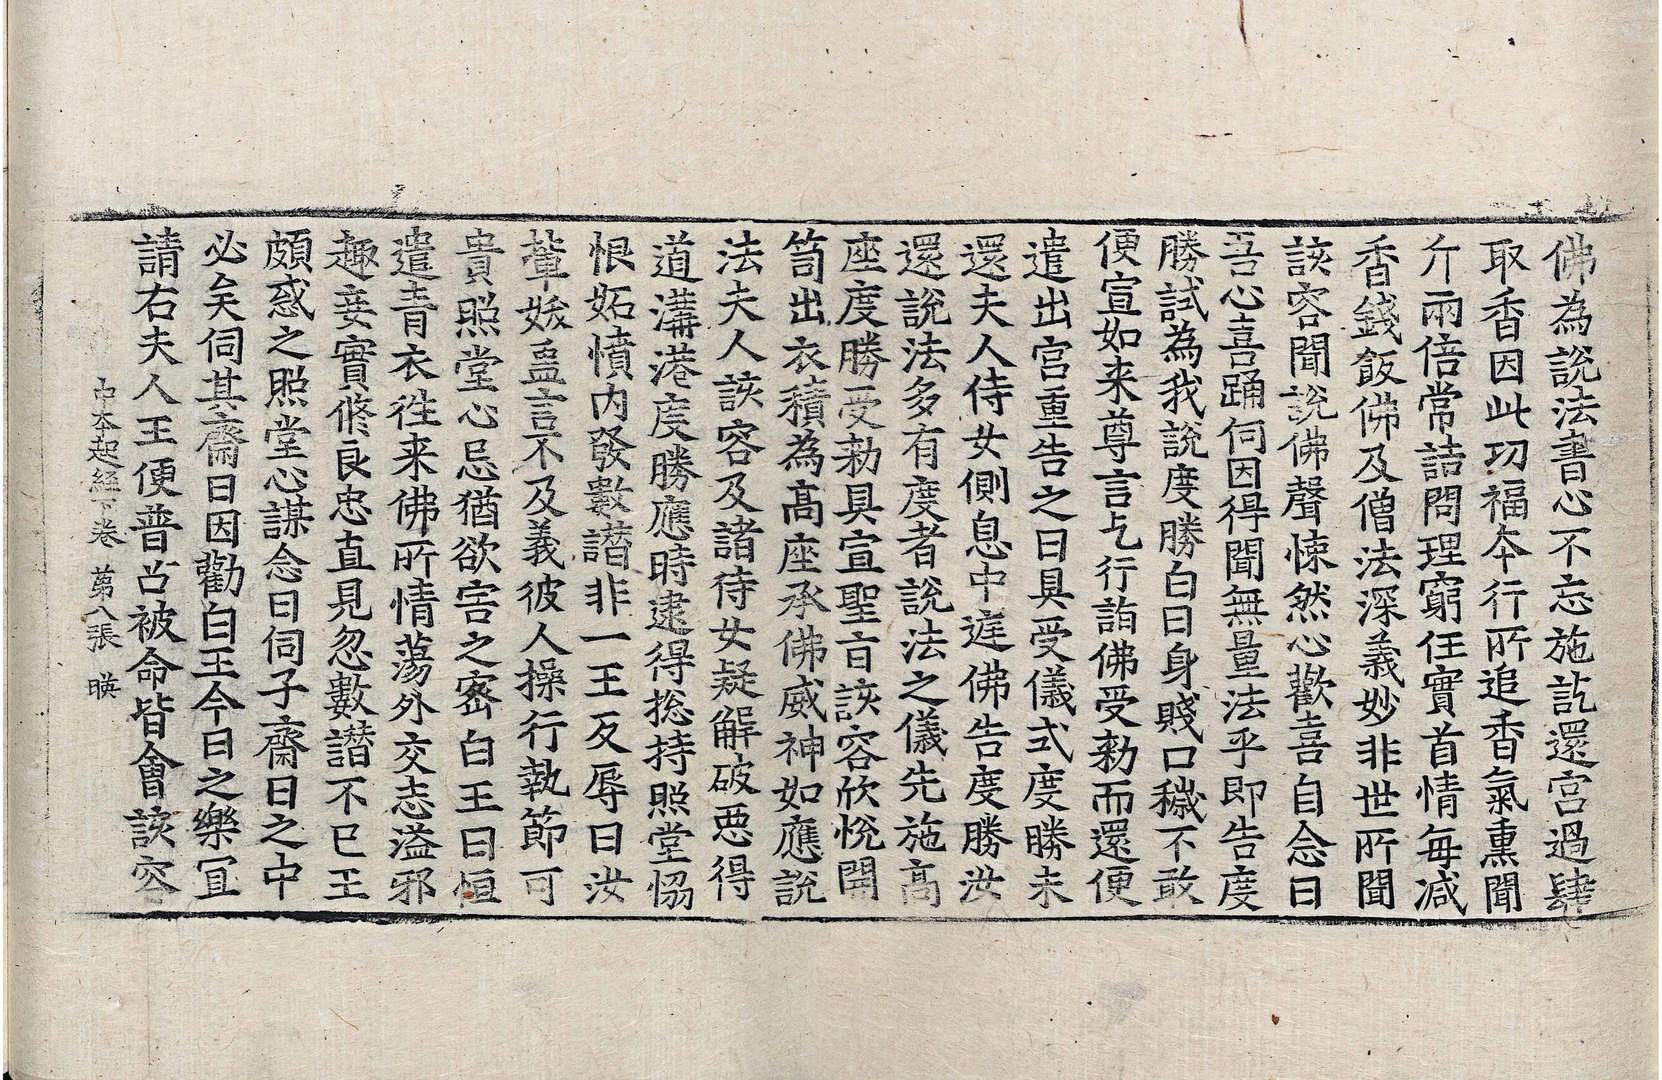 佛為說法書心不忘施訖還宮過肆
取香因此功福夲行所追香氣熏聞
斤兩倍常詰問理窮任實首情每減
香錢飯佛及僧法深義妙非世所聞
該容聞說佛聲悚然心歡喜自念曰
吾心喜踊何因得聞無量法乎即告度
勝試為我說度勝白曰身賤口穢不敢
便宣如来尊言乞行詣佛受勑而還便
遣出宮重告之曰具受儀式度勝未
還夫人侍女側息中庭佛告度勝汝
還說法多有度者說法之儀先施高
座度勝受勑具宣聖旨該容欣悅開
笥出衣積為髙座承佛威神如應說
法夫人該容及諸侍女疑解破惡得
道溝港度勝應時逮得捴持照堂恊
恨妬憤內發數譖非一王反辱曰汝
輩妭𧖅言不及義彼人操行執節可
貴照堂心忌猶欲害之密白王曰恒
遣青衣徃来佛所情蕩外交志溢邪
趣妾實脩良忠直見忽數譖不已王
頗惑之照堂心謀念曰伺子齋日之中
必矣伺其齋日因勸白王今日之樂冝
請右夫人王便普召被命皆會該容
中夲起經下卷 苐八張 暎